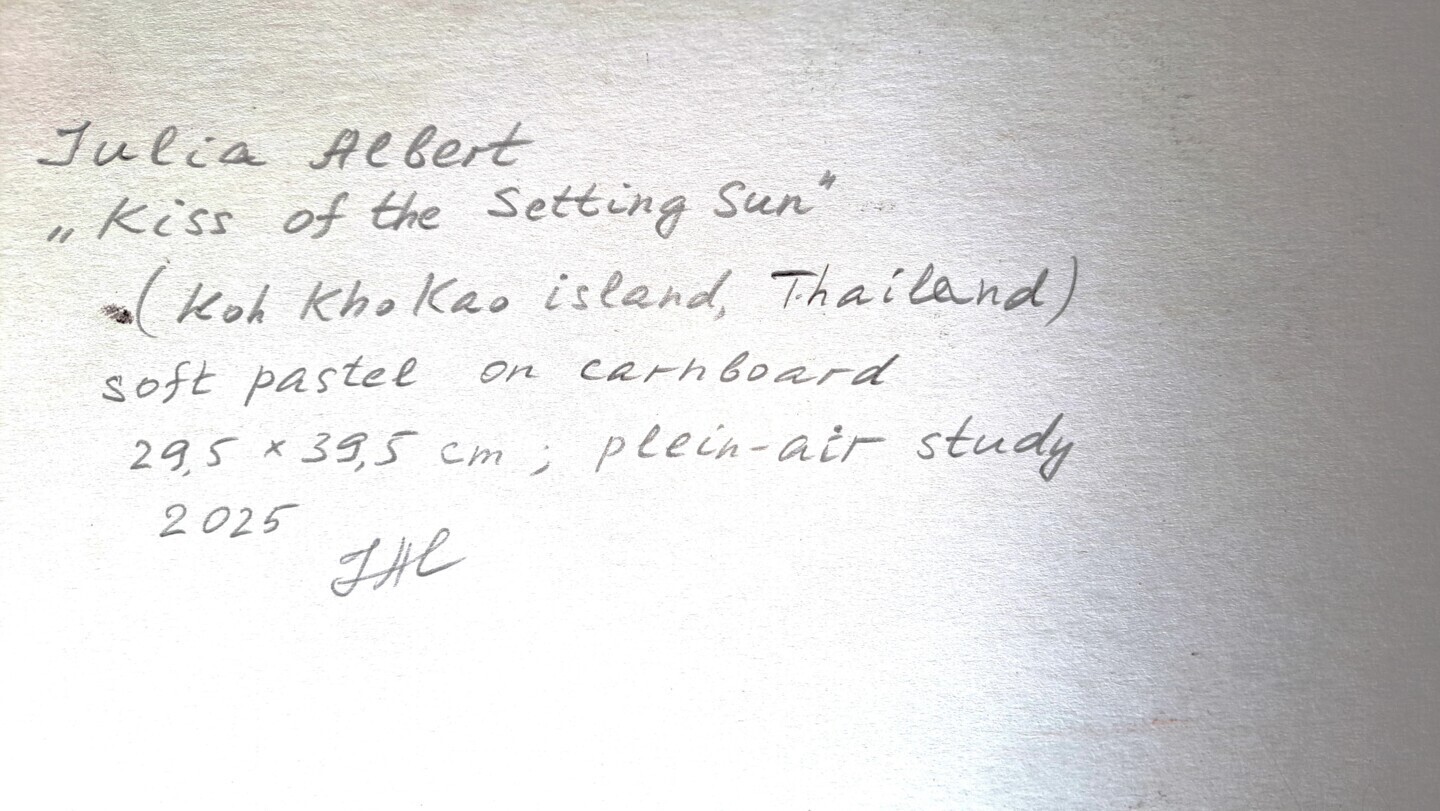 Julia Albert
„Kiss of the Setting Sun"
(Koh Kho Kao island, Thailand)
soft pastel on carnboard
29,5 × 39,5 cm; plein-air study
2025
JAl